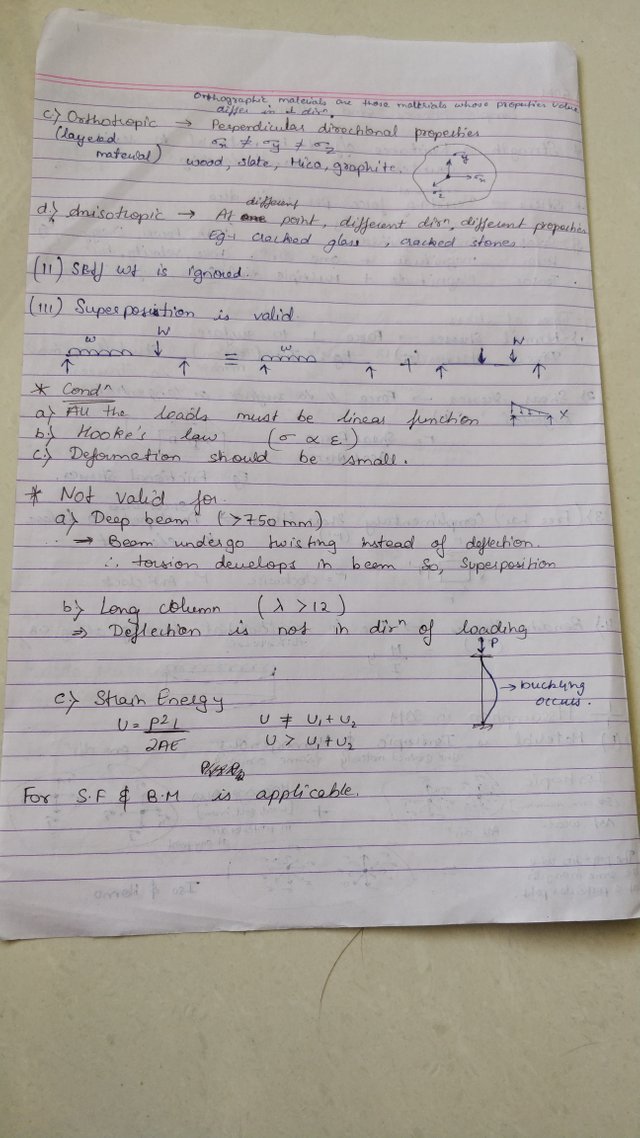 Orthographic materials are those materials whose properties value
differ in ⊥ dirⁿ.
c.) Orthotropic → Perpendicular directional properties
(layered material) σx ≠ σy ≠ σz
wood, slate, Mica, graphite.
σy
σx
σz
d.) Anisotropic → At different point, different dirⁿ, different properties
Eg→ cracked glass, cracked stones
(II) Self wt is ignored.
(III) Superposition is valid.
w W = w + W
* Condⁿ
a.) All the loads must be linear function
x
b.) Hooke's law (σ ∝ ε)
c.) Deformation should be small.
* Not valid for
a.) Deep beam (>750 mm)
→ Beam undergo twisting instead of deflection.
∴ torsion develops in beam So, Superposition
b.) Long column (λ >12)
⇒ Deflection is not in dirⁿ of loading
P
→ buckling
occurs.
c.) Strain Energy
U = P²L / 2AE U ≠ U₁+U₂
U > U₁+U₂
For S.F & B.M is applicable.